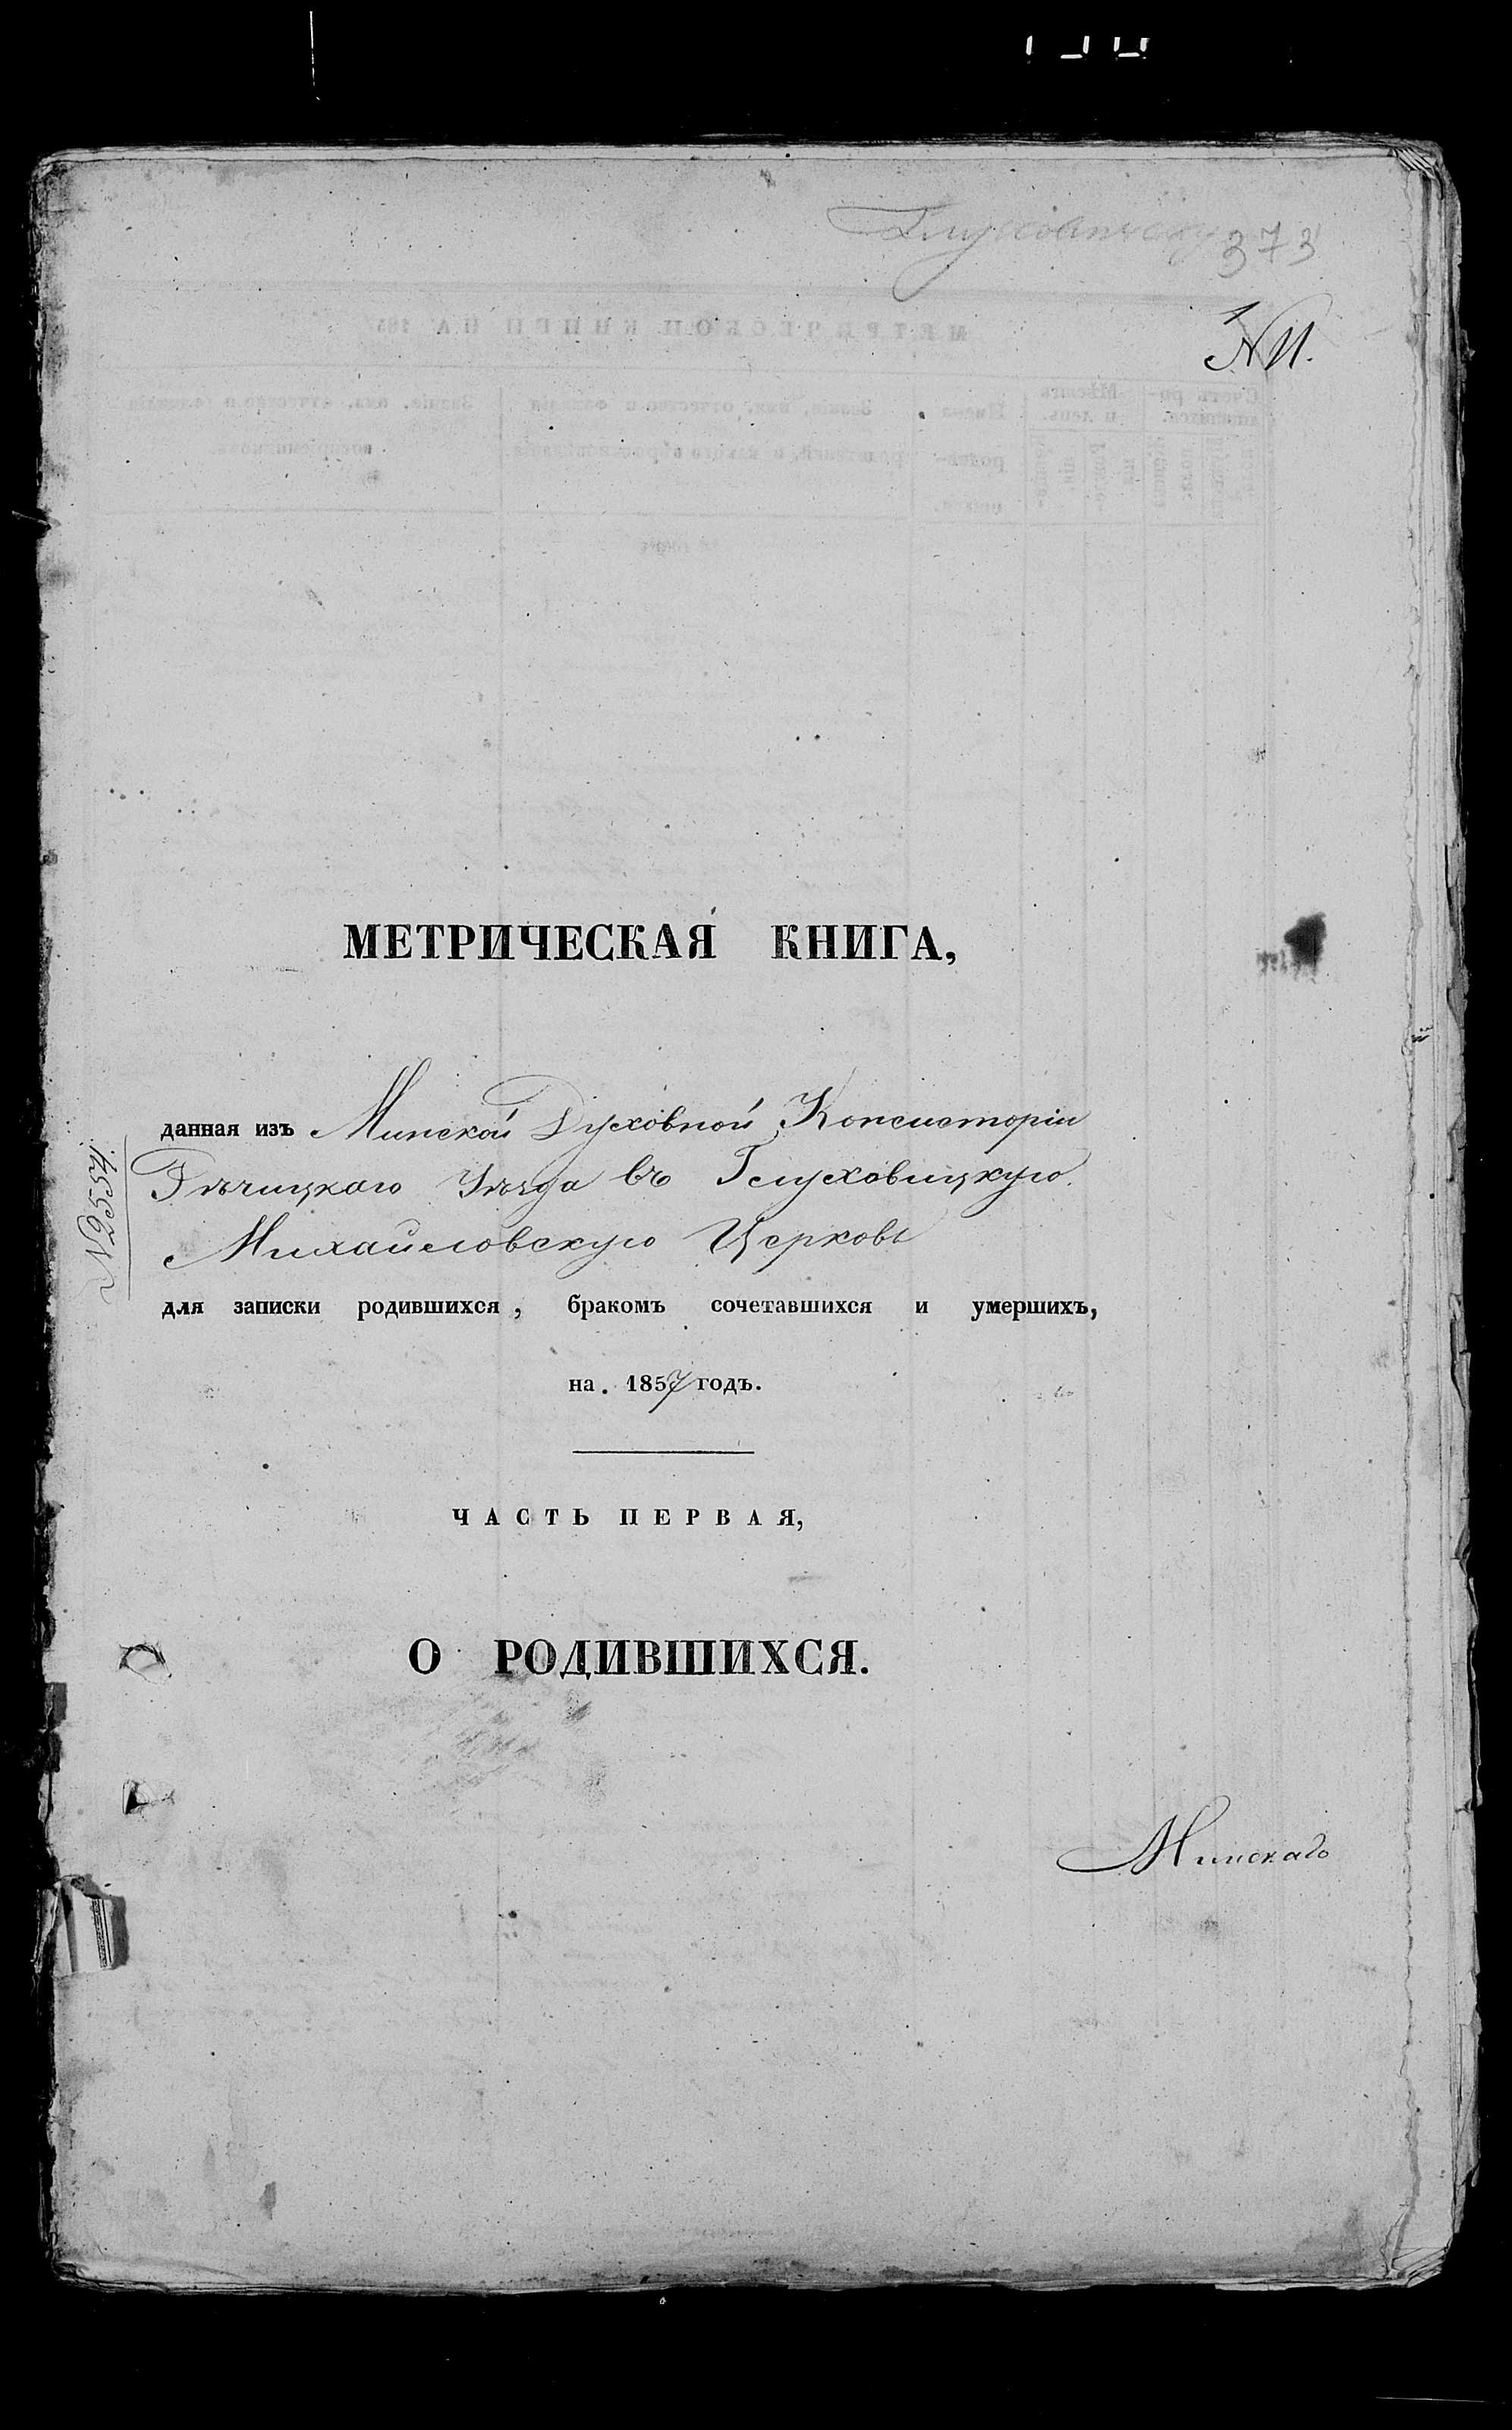 373
МЕТРИЧЕСКАЯ КНИГА,
данная изъ Минской Духовной Консисторіи
Рѣчицкаго Уѣзда въ Глуховицкую
Михайловскую Церковь
№ 2554.
для записки родившихся, бракомъ сочетавшихся и умершихъ,
на 1857 годъ.
ЧАСТЬ ПЕРВАЯ,
О РОДИВШИХСЯ.
Минскаго